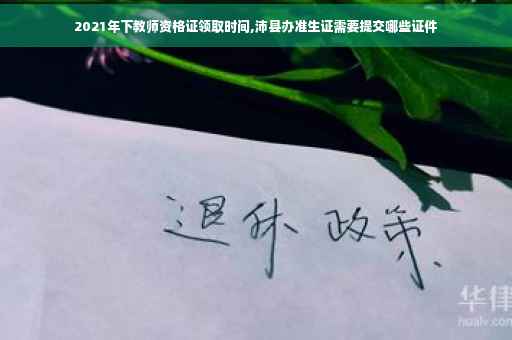 2021年下教师资格证领取时间,沛县办准生证需要提交哪些证件
退休 政策
华律
hualv.com